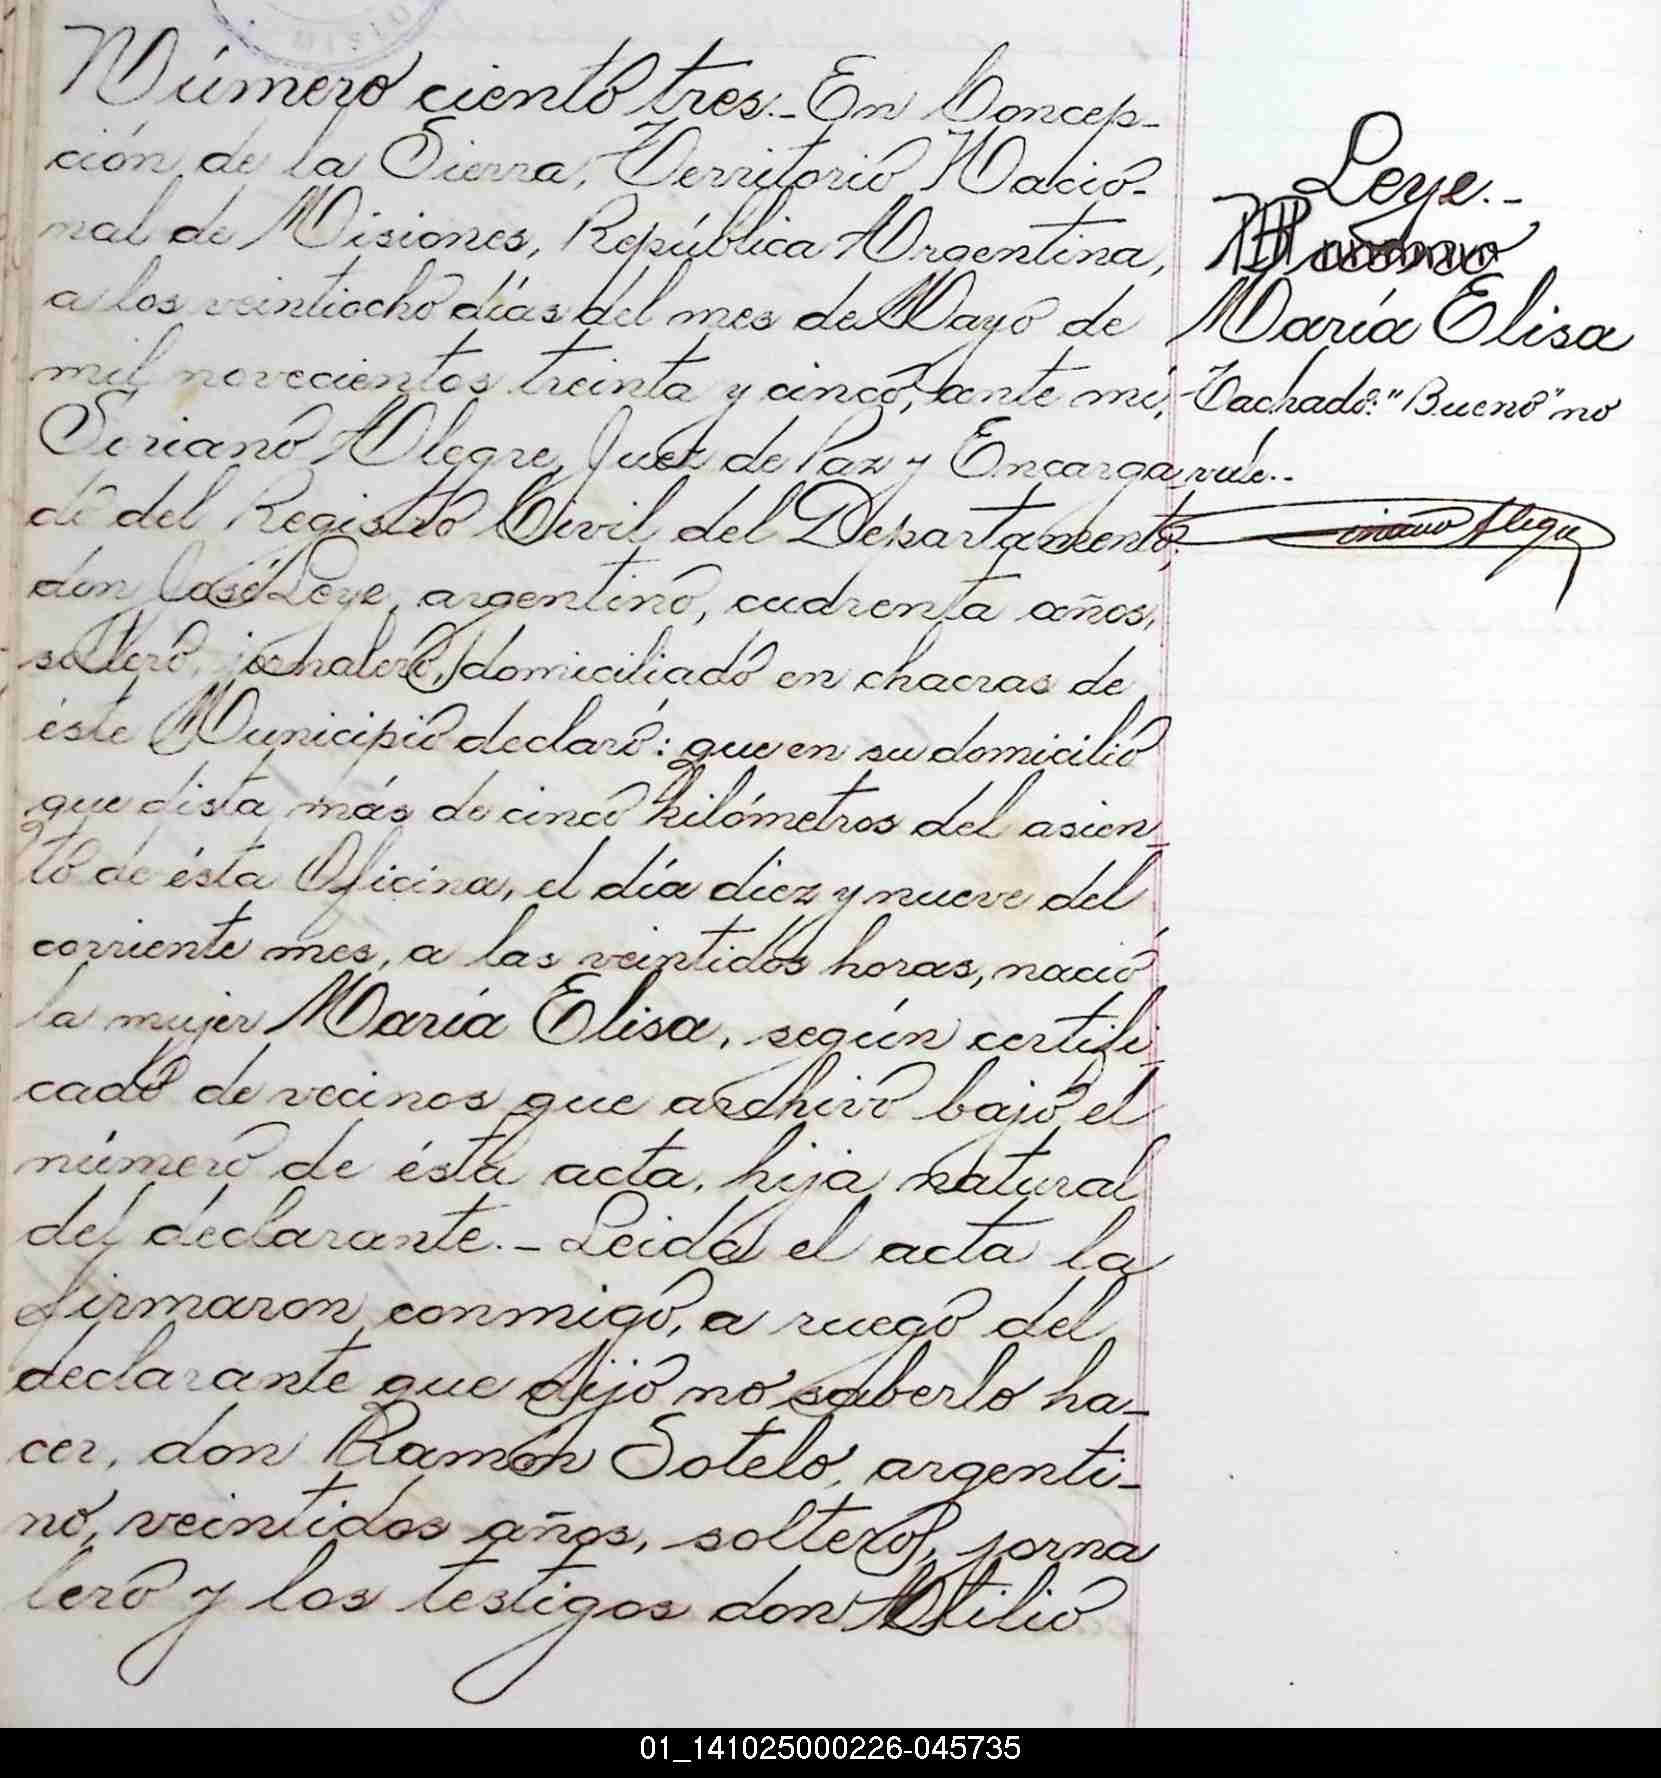 Número ciento tres.- En Concep-
ción de la Sierra, Territorio Nacio-
nal de Misiones, República Argentina,
a los veintiocho días del mes de Mayo de
mil novecientos treinta y cinco, ante mí,
Soriano Alegre, Juez de Paz y Encarga
do del Registro Civil del Departamento,
don José Leye, argentino, cuarenta años,
soltero, jornalero, domiciliado en chacras de
éste Municipio declaró: que en su domicilio
que dista más de cinco kilómetros del asien-
to de ésta Oficina, el día diez y nueve del
corriente mes, a las veintidos horas, nació
la mujer María Elisa, según certifi-
cado de vecinos que archivo bajo el
número de ésta acta, hija natural
del declarante.- Leida el acta la
firmaron conmigo, a ruego del
declarante que dijo no saberlo ha-
cer, don Ramón Sotelo, argenti-
no, veintidos años, soltero, jorna
lero y los testigos don Atilio
Leye.-
María Elisa
Tachado: "Bueno" no
vale.-
Soriano Alegre
01_141025000226-045735